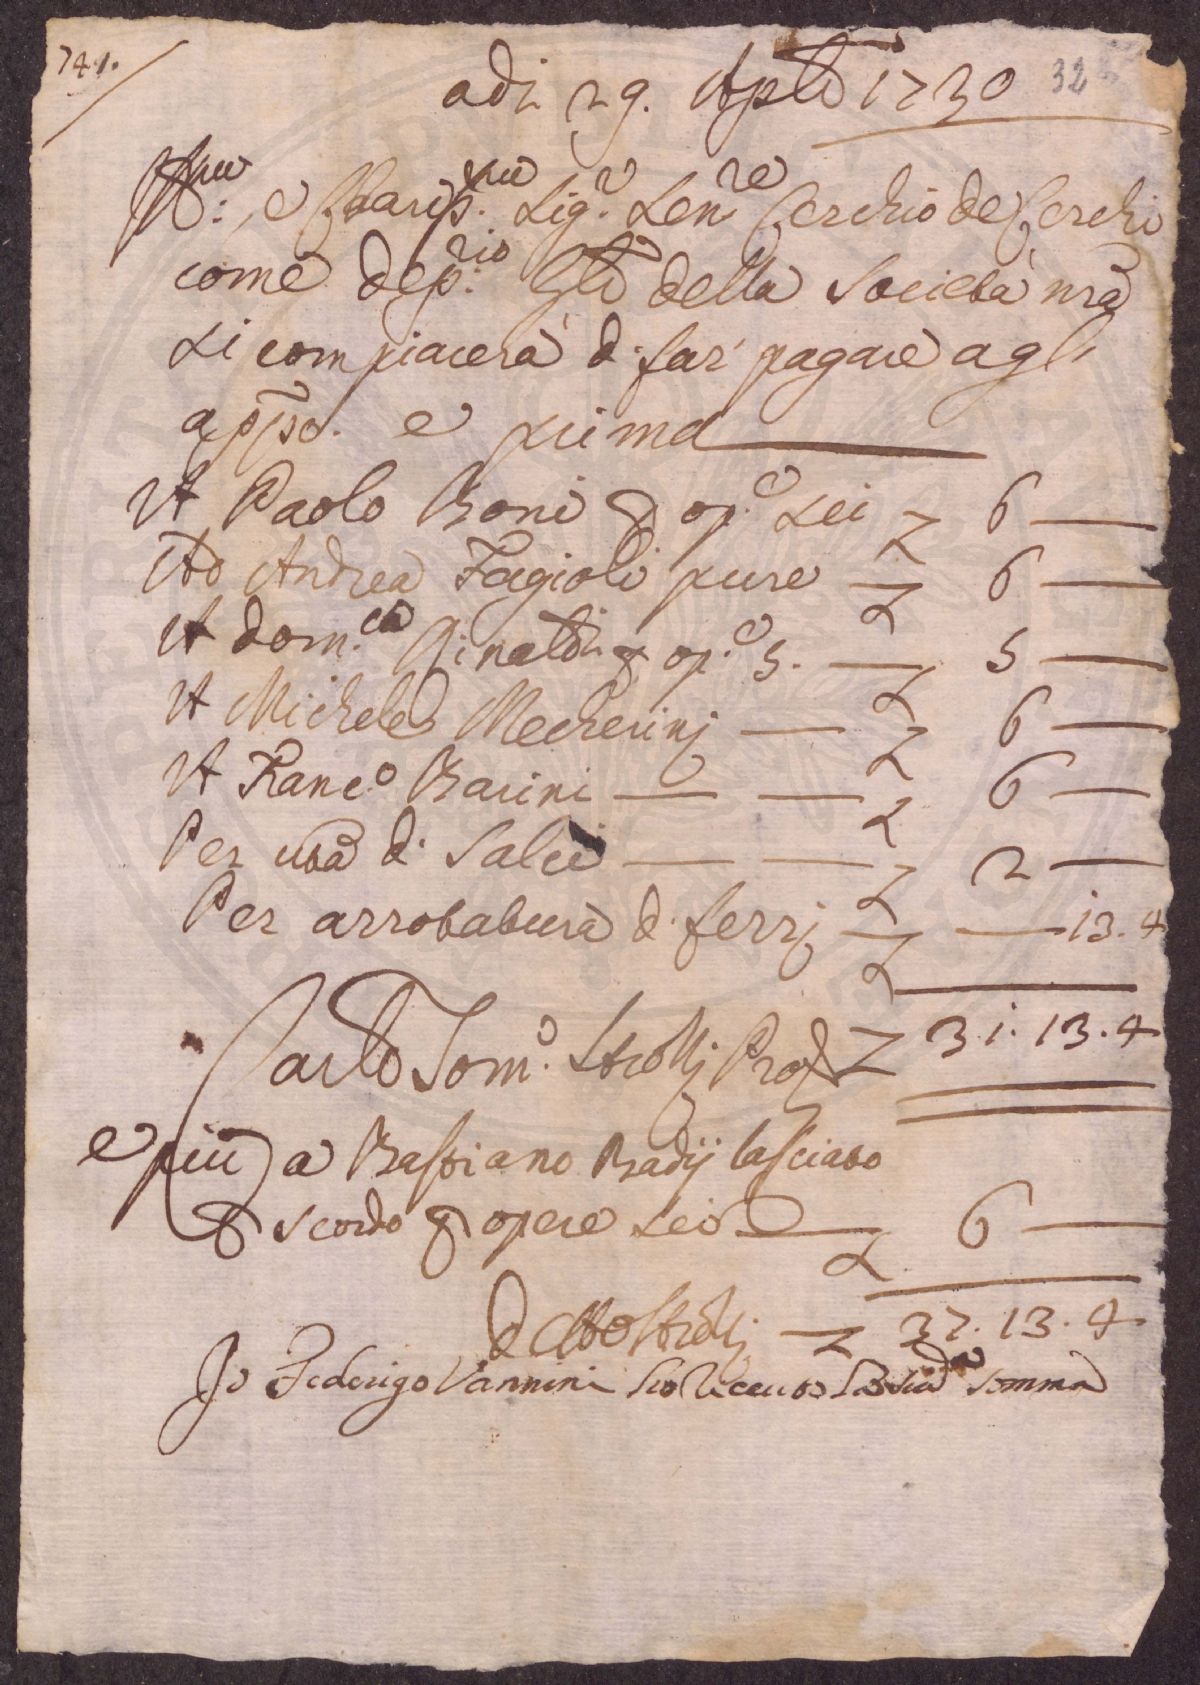 741.
32
adi 29. Aple 1730
Ill.mo e Clariss.mo Sig.r Sen.re Cerchio de Cerchi
come dep.rio Gle della Società nrã
si compiacerà di far pagare agli
apps.o e prima
A Paolo Boni p op.e sei L 6
A Andrea Fagioli pure L 6
A Dom.co Rinaldi p op.e 5. L 5
A Michele Mecherinj L 6
A Franc.o Barini L 6
Per una di Salci L 2
Per arrotatura di ferrj L 13.4
Carlo Tom.o Strozzj Prov.re L 31.13.4
e più a Bastiano Badij lasciato
p scordo p opere sei L 6
Detto Strozzj L 37.13.4
Io Federigo Vannini ho riceuto la sud.a somma